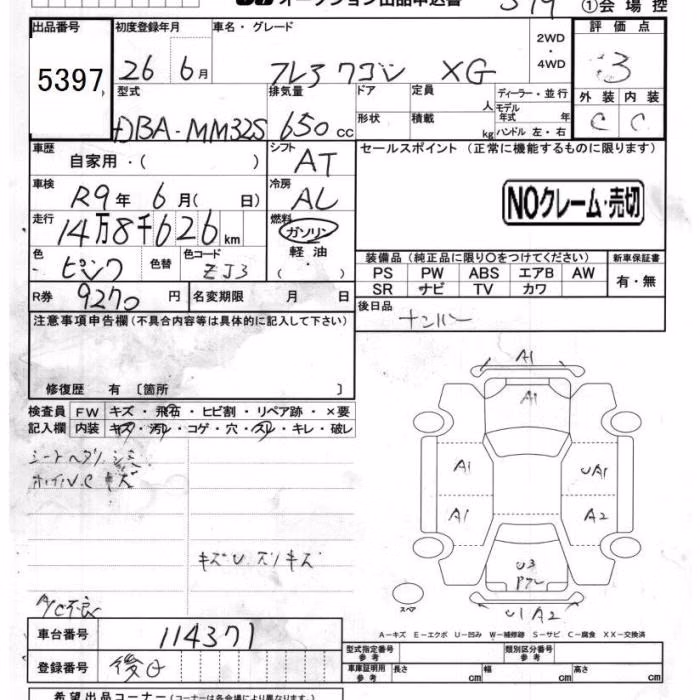 オークション出品申込書
①会場控
出品番号 初度登録年月 車名・グレード
5397 26 6月 フレアワゴン XG 2WD・4WD
評価点
3
型式 排気量 ドア 定員 人 ディーラー・並行
外装 内装
形状 積載 kg モデル年式 年 ハンドル 左・右
DBA-MM32S 650cc
C C
車歴 自家用・( ) シフト AT
セールスポイント (正常に機能するものに限ります)
車検 R9年 6月( 日) 冷房 AC
NOクレーム・売切
走行 14万8千626km 燃料 ガソリン 軽油・( )
色 ピンク 色替 色コード ZJ3
装備品 (純正品に限り○をつけてください) 新車保証書
PS PW ABS エアB AW 有・無
SR ナビ TV カワ
R券 9270円 名変期限 月 日
後日品 ナンバー
注意事項申告欄 (不具合内容等は具体的に記入して下さい)
修復歴 有 〔箇所 〕
検査員 FW キズ・飛石・ヒビ割・リペア跡・×要
記入欄 内装 キズ・汚レ・コゲ・穴・スレ・キレ・破レ
A1
A1
A1 UA1
A1 A2
キズU
U3
スペア
U1 A2
A/C不良
A-キズ E-エクボ U-凹み W-補修跡 S-サビ C-腐食 XX-交換済
車台番号 114371
型式指定番号 参考 類別区分番号 参考
登録番号 後日
車庫証明用 参考 長さ cm 幅 cm 高さ cm
希望出品コーナー (コーナーは各会場により異なります)